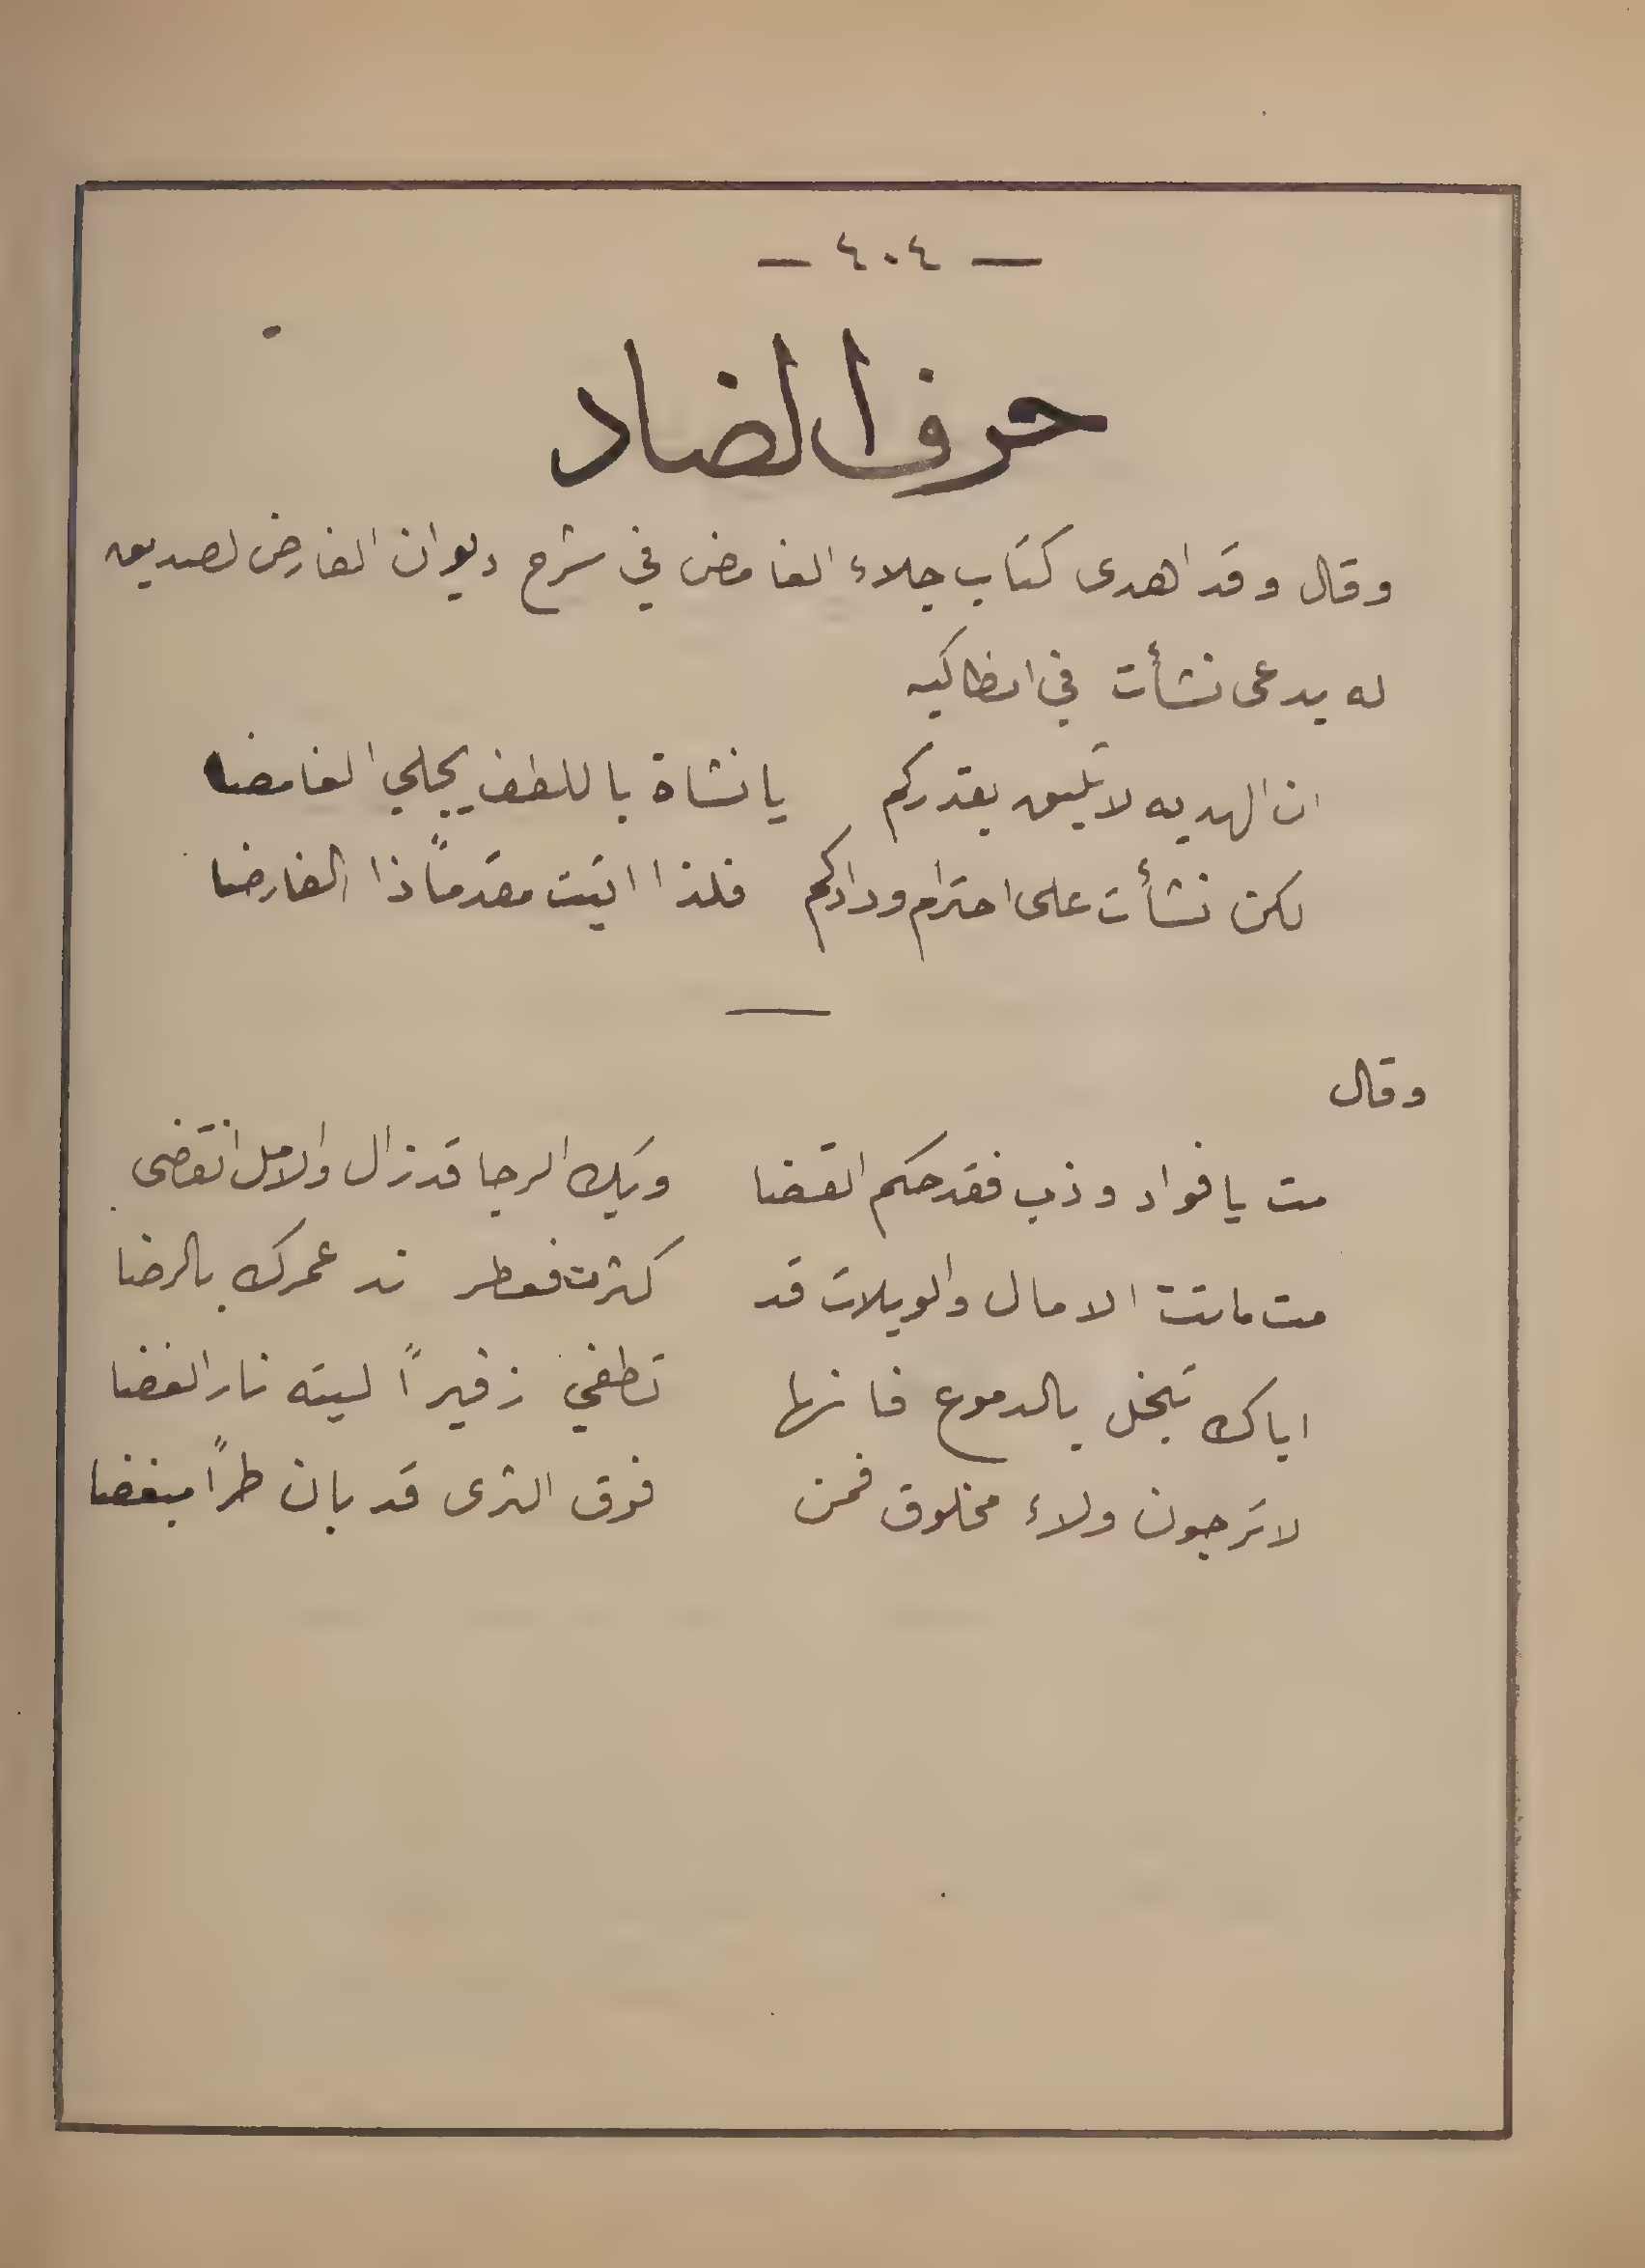 — ٤٠٤ —
حرف الضاد
وقال وقد اهدى كتاب جلاء الغامض في شرح ديوان الفارض لصديق
له يدعى نشأت في انطاكيه
ان الهديه لا تليق بقدركم يا نشاة باللطف يجلي الغامضا
لكن نشأت على احترام ودادكم فلذا اتيت مقدماً ذا الفارضا
وقال
مت يا فواد وذب فقد حكم القضا وبك الرجا قد زال والامل انقضى
مت ماتت الامال والويلات قد كثرت فعطر ند عمرك بالرضا
اياك تبخل بالدموع فانها تطفي زفيراً ليته نار الغضا
لا ترجون ولاء مخلوق فمن فوق الثرى قد بان طراً مبغضا